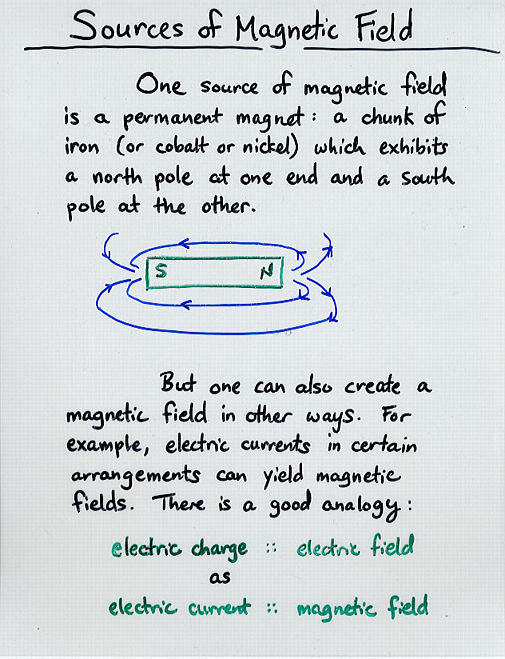 Sources of Magnetic Field
One source of magnetic field
is a permanent magnet: a chunk of
iron (or cobalt or nickel) which exhibits
a north pole at one end and a south
pole at the other.
S N
But one can also create a
magnetic field in other ways. For
example, electric currents in certain
arrangements can yield magnetic
fields. There is a good analogy:
electric charge :: electric field
as
electric current :: magnetic field